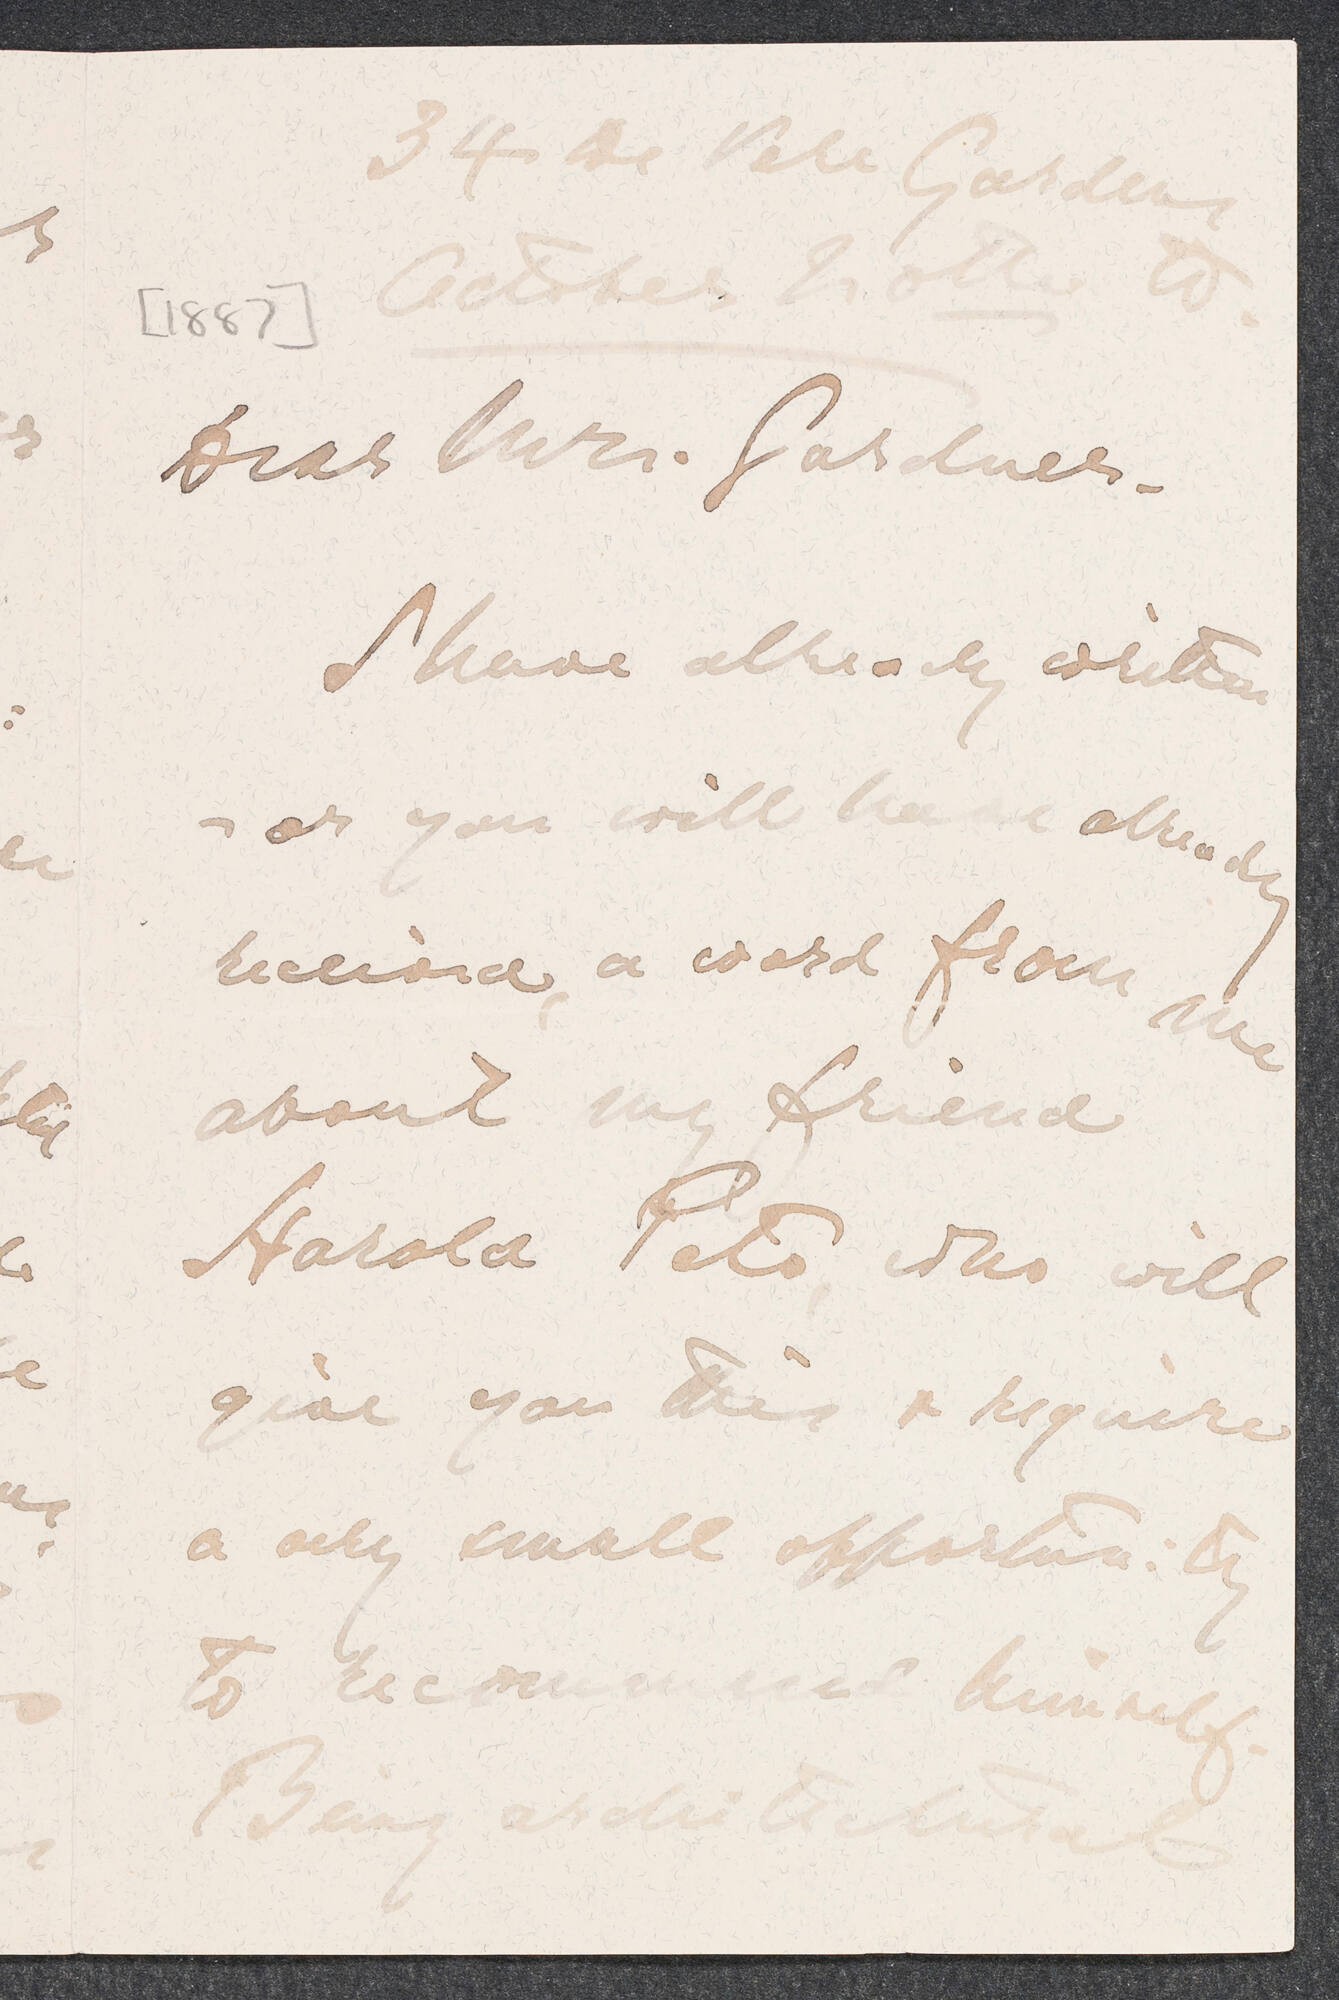 34 De Vere Gardens
October
[1887]
Dear Mrs. Gardner.
I have already written
- as you will have already
received, a word from me
about my friend
Harold Peto, who will
give you this & require
a very small opportunity
to recommend himself.
Being architectural